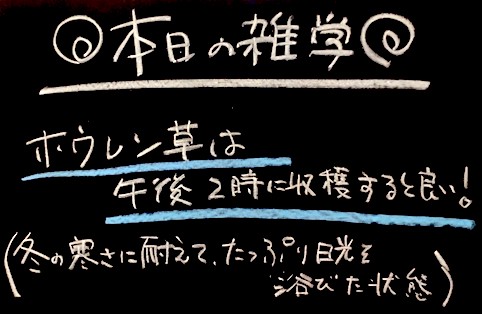 本日の雑学
ホウレン草は
午後2時に収穫すると良い!
(冬の寒さに耐えて、たっぷり日光を
浴びた状態)